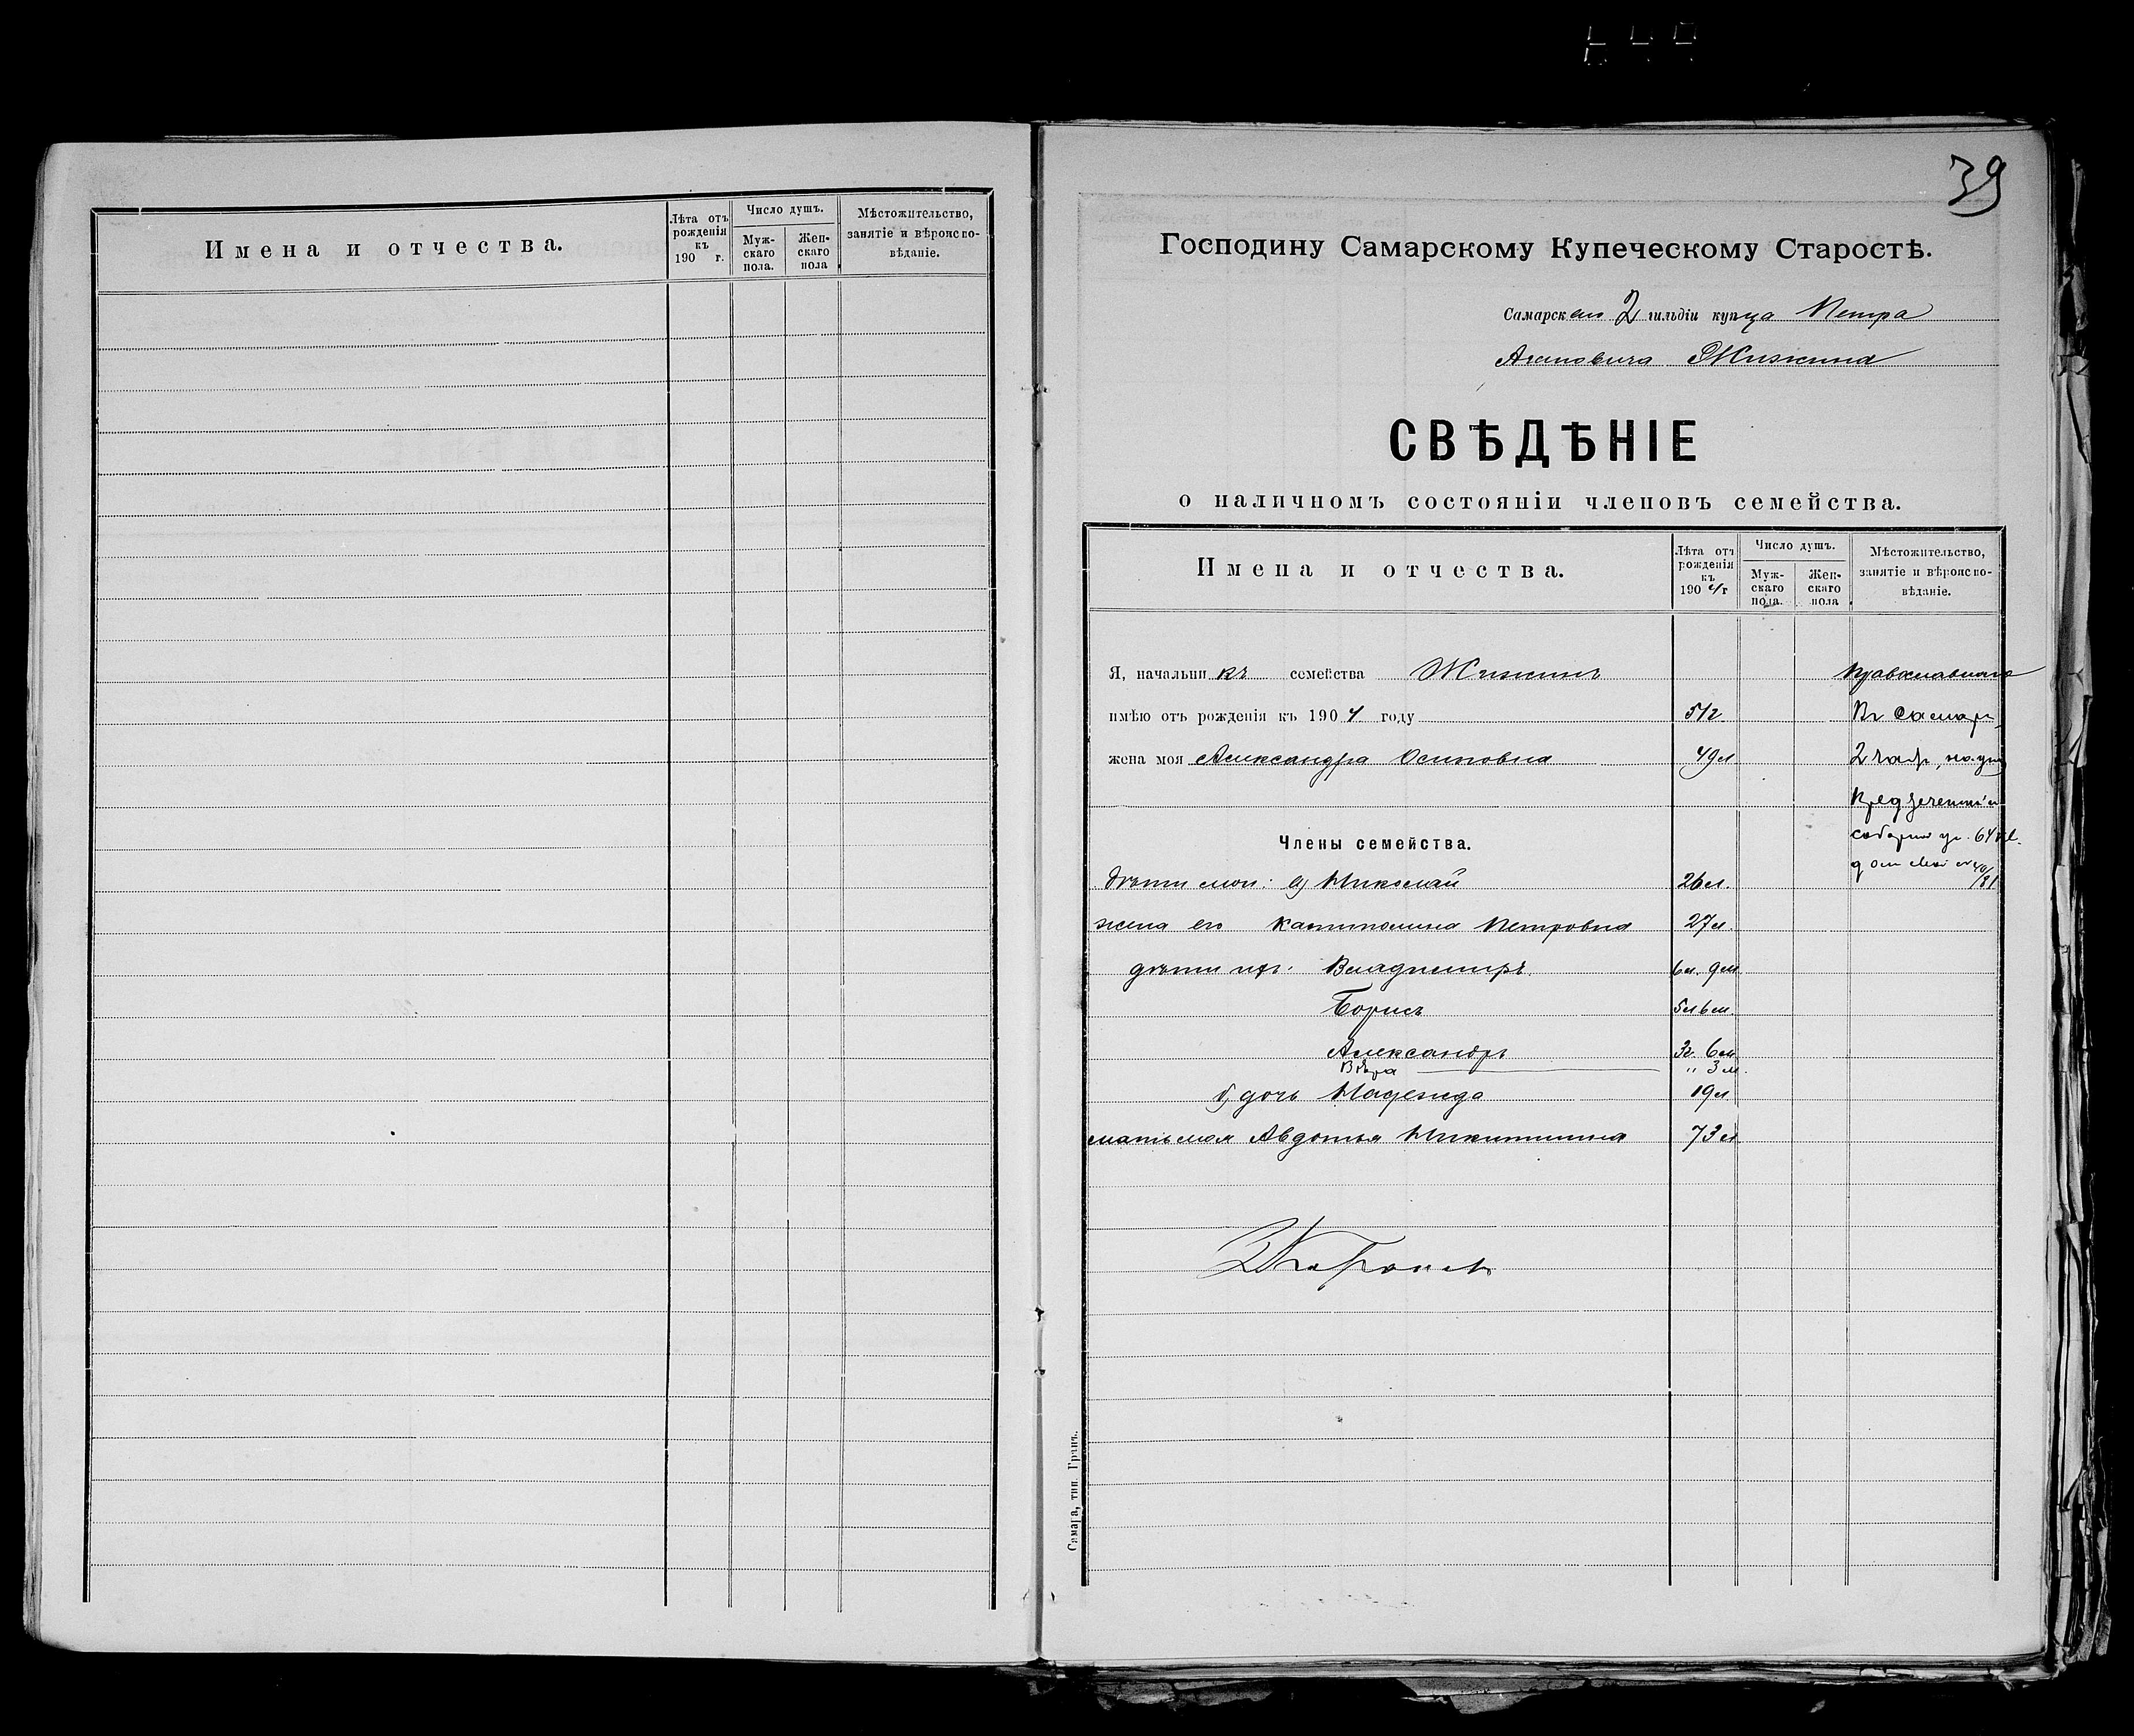 Имена и отчества.
Лѣта отъ рожденія къ 190 г.
Число душъ.
Мужскаго пола.
Женскаго пола
Мѣстожительство, занятіе и вѣроисповѣданіе.
39
Господину Самарскому Купеческому Старостѣ.
Самарскаго 2 гильдіи купца Петра
Агаповича Жижина
СВѢДѢНІЕ
о наличномъ состояніи членовъ семейства.
Имена и отчества.
Лѣта отъ рожденія къ 1904 г
Число душъ.
Мужскаго пола.
Женскаго пола
Мѣстожительство, занятіе и вѣроисповѣданіе.
Я, начальникъ семейства Жижинъ
имѣю отъ рожденія къ 1904 году 51г. Въ Самарѣ
жена моя Александра Осиповна 49л 2 части,
Члены семейства.
соборной ул. 64 кв.
домъ
дѣти мои: а) Николай 26л.
жена его Капитолина Петровна 27л.
дѣти ихъ: Владиміръ. 6л. 9м.
Борисъ 5л 6м.
Александръ 3г. 6м
Вѣра " 3м.
б) дочь Надежда 19л
мать моя Авдотья Никитишна 73л
Самара, тип. Гранъ.